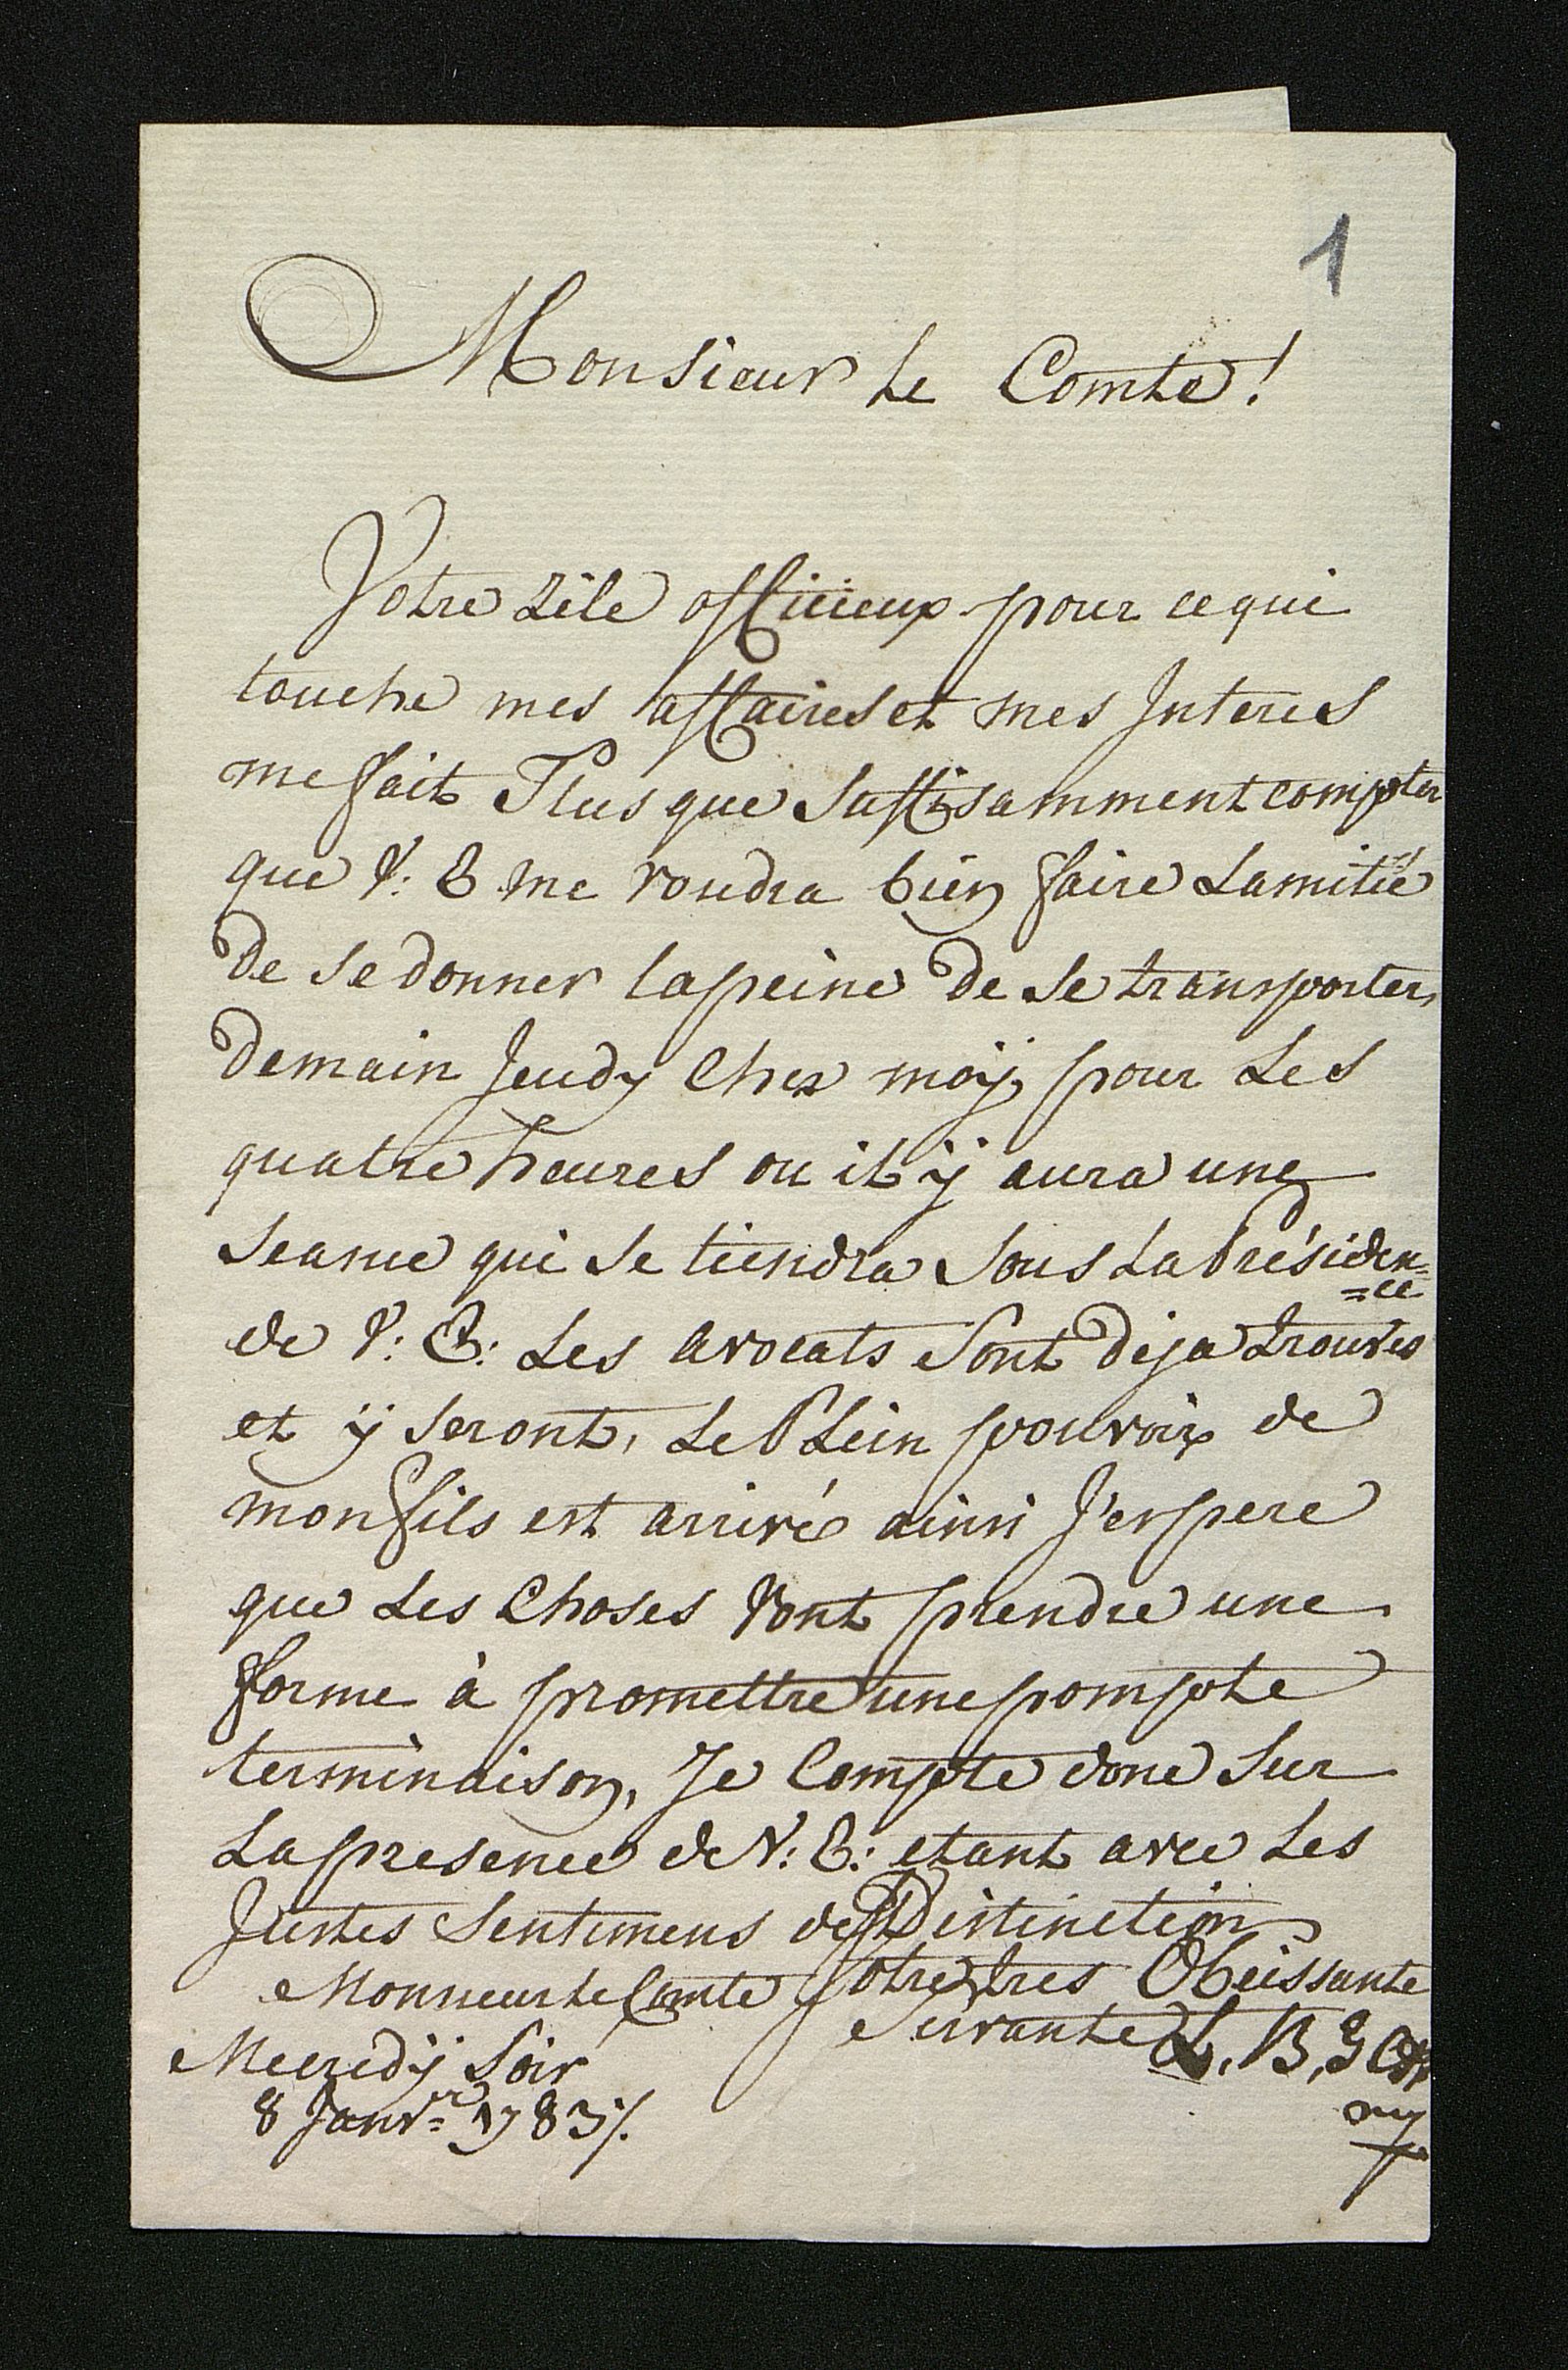 1
Monsieur Le Comte!
Votre Zèle officieux pour ce qui
touche mes affaires et mes Interes
me fait Plus que Suffisamment compter
que V: E me voudra bien faire Lamitié
de se donner la peine de se transporter
demain Jeudy Chez moÿ pour Les
quatre heures ou il ÿ aura une
Seance qui se tiendra sous La Présiden=
=ce
de V: E: Les avocats sont deja trouvés
et ÿ seront, Le Plein pouvoir de
mon fils est arrivé ainsi J'espere
que Les Choses vont prendre une
forme à promettre une prompte
terminaison, Je Compte donc sur
La presence de V: E: etant avec Les
Justes Sentimens de Distinction
Monsieur le Comte Votre tres Obeissante
Servante L. B, G
Mecredÿ Soir
8 Janvr= 1783/.